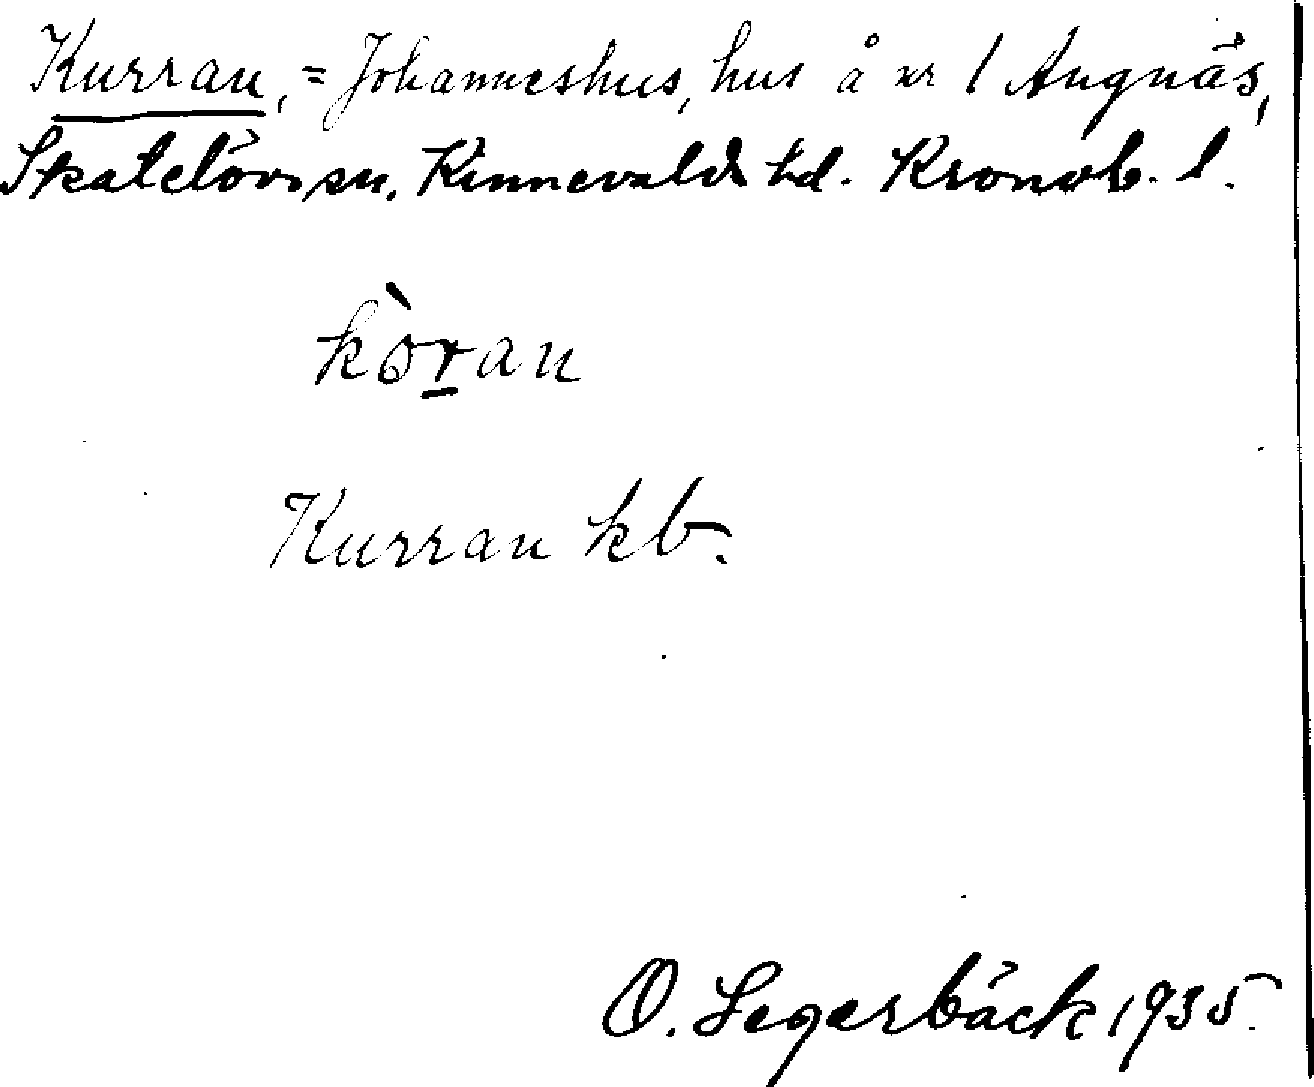 Kurran, = Johanneshus, hus å nr 1 Augnäs,
Skatelövs sn. Kinnevalds hd. Kronob. l.
kòran
Kurran kb.
O. Segerbäck 1935.